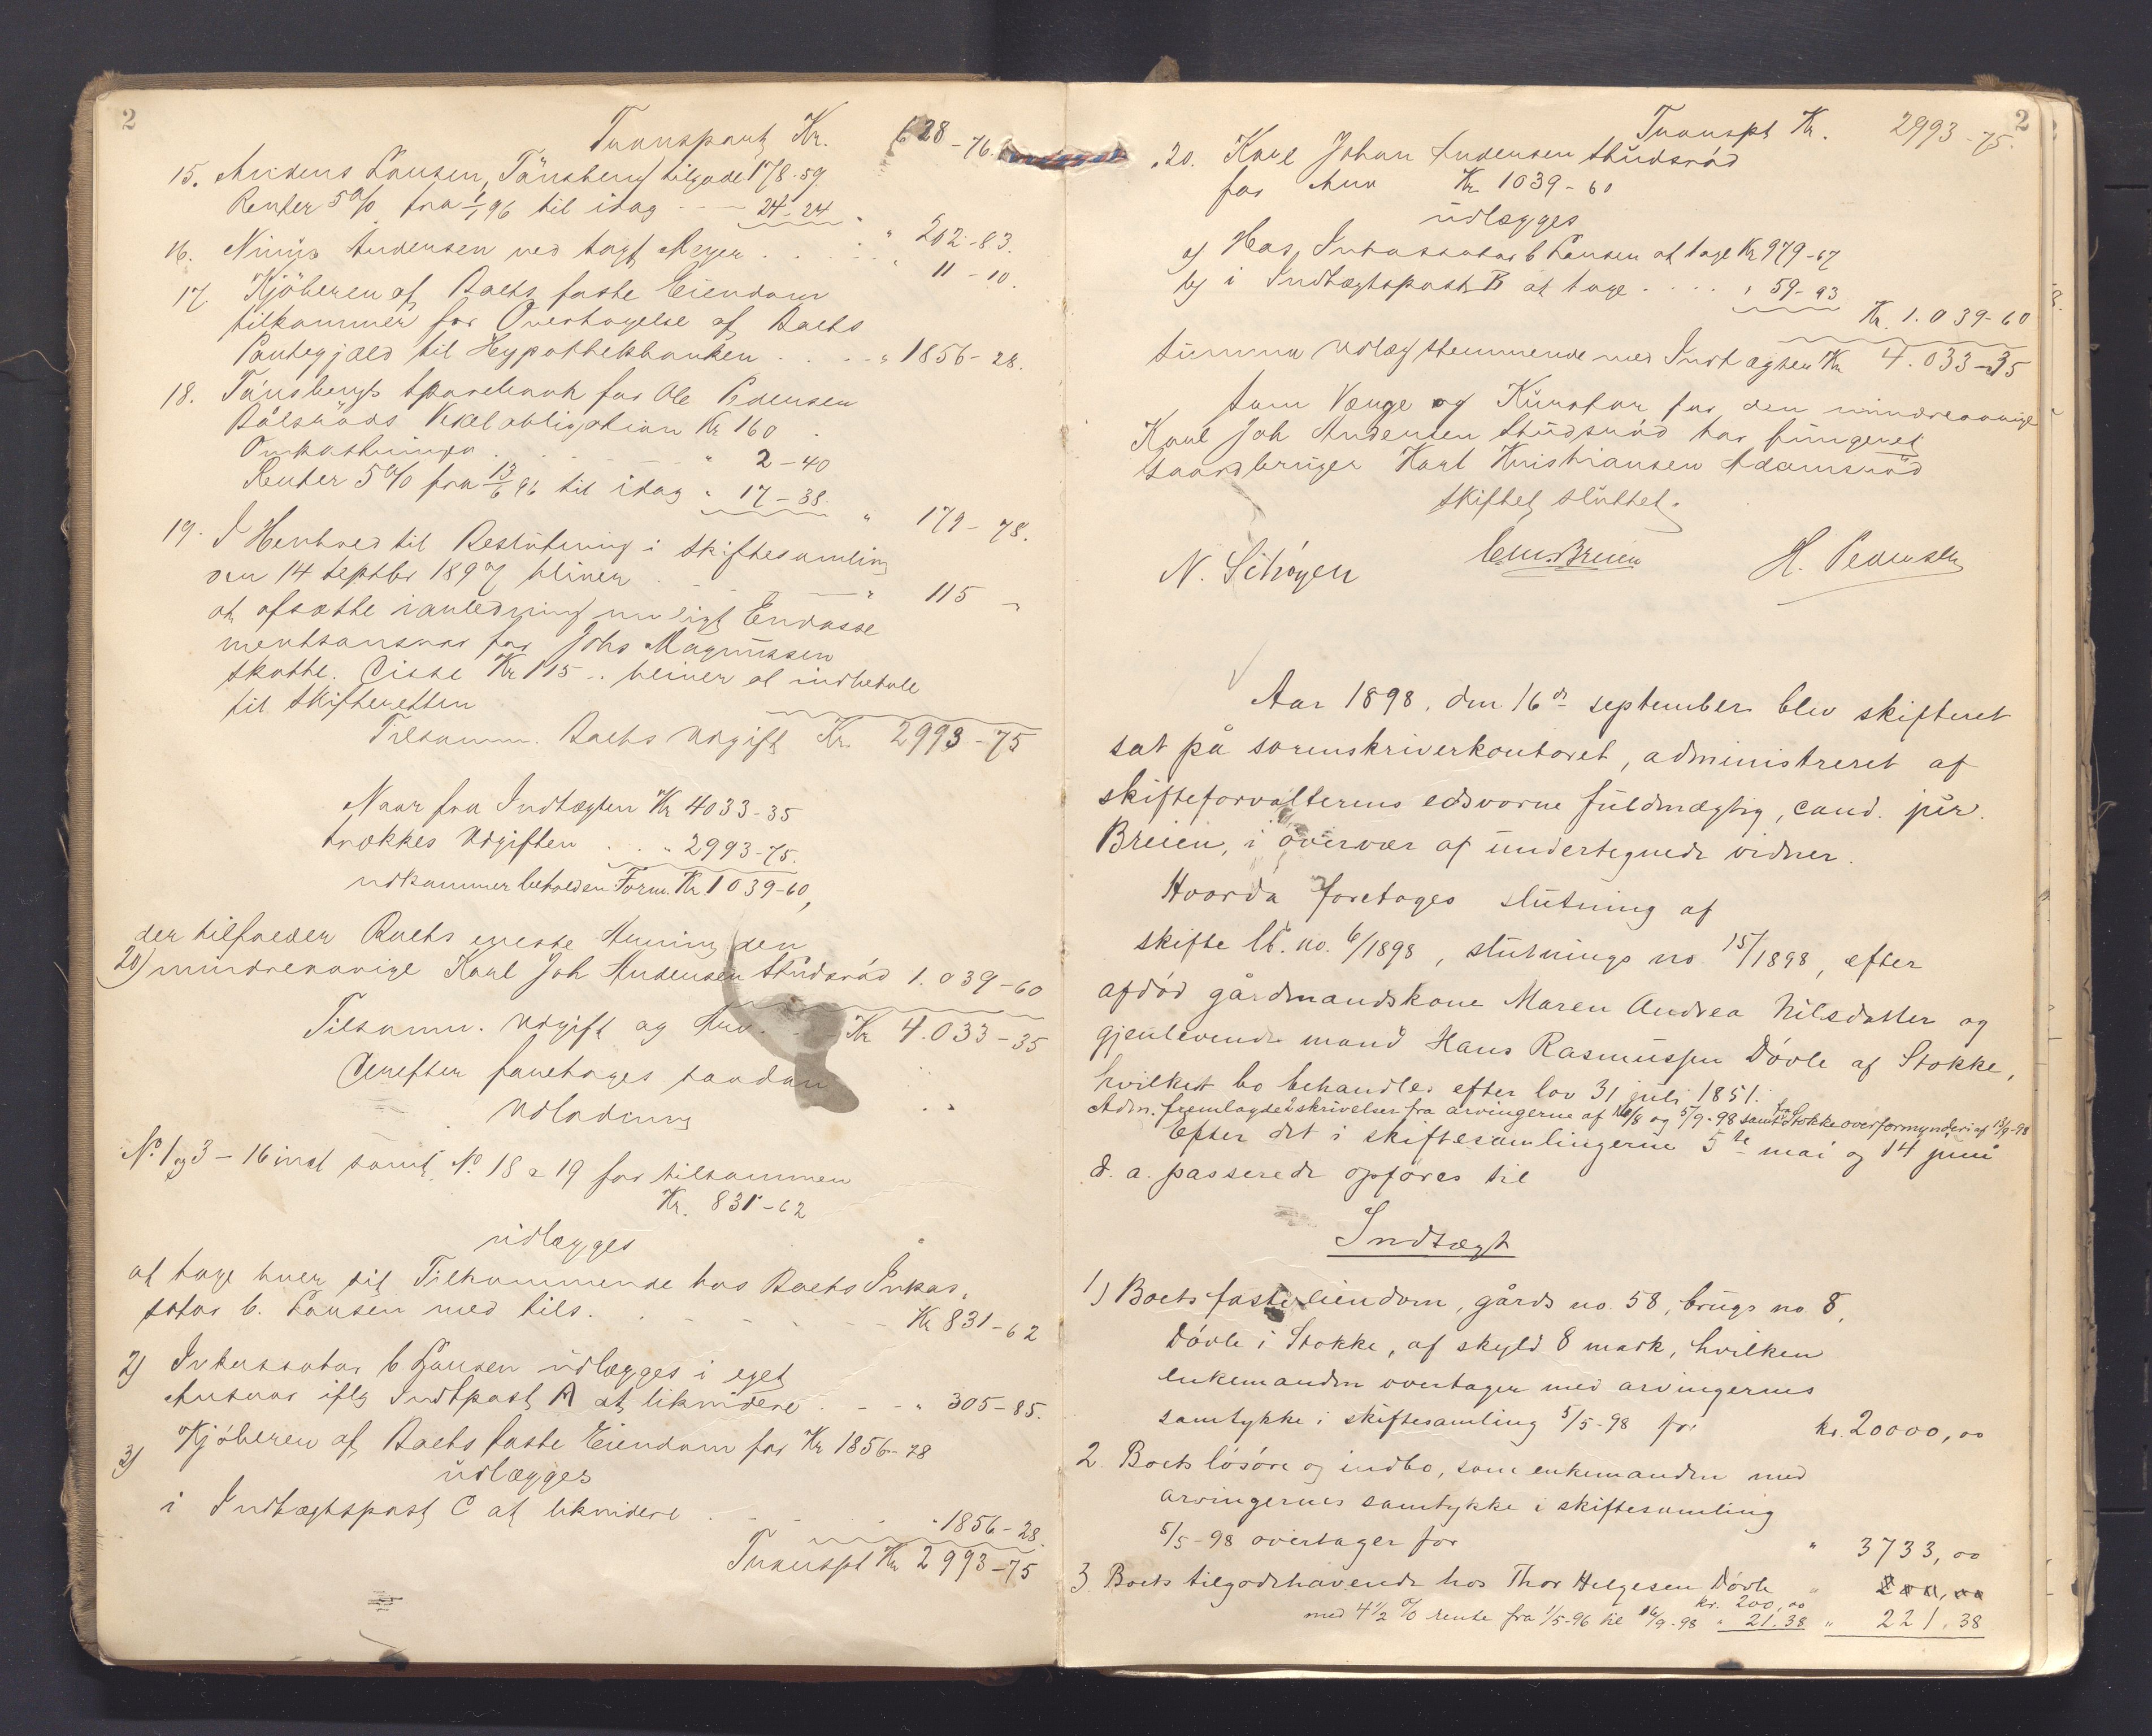 2
Transport Kr. 628-76.
15. Anders Hansen, Tønsberg tilgode 178.59
Renter 5% fra 1/1 96 til idag - - 24-24 " 202-83.
16. Andersen ved Meyer . . . . " 11-10.
17. Kjøberen af Boets faste Eiendom
tilkommer for Overtagelse af Boets
Pantegjæld til Hypothekbanken . . . . " 1856-28.
18. Tønsbergs Sparebank for Ole Pedersen
Bålsrøds Vexelobligation Kr 160 .
Omkostninger . . . . " 2-40
Renter 5% fra 13/6 96 til idag " 17-38. " 179-78.
19. I Henhold til Beslutning i Skiftesamling
den 14 Septbr 1897 bliver . . . . " 115 "
at afsætte i anledning muligt Endosse
mentsansvar for Johs Magnussen
Skatte. Disse Kr 115 .. bliver at indbetale
til Skifteretten
Tilsamm. Boets Udgift Kr. 2993-75
Naar fra Indtægten Kr 4033-35
trækkes Udgiften . . " 2993-75.
udkommer beholden Form. Kr. 1039-60,
der tilfalder Boets eneste Arving den
20) mindreaarige Karl Joh Andersen Studsrød 1.039-60
Tilsamm. Udgift og Arv. . . Kr 4.033-35
Derefter foretages saadan
Udlodning
No. 1 og 3-16 incl samt No 18 & 19 for tilsammen
Kr. 831-62
udlægges
at tage hver sit Tilkommende hos Boets Inkas,
sator C. Hansen med tils. . . . . Kr 831-62
2) Inkassator C Hansen udlægges i eget
Ansvar iflg Indtpost A at likvidere . - - " 305-85.
3) Kjøberen af Boets faste Eiendom for Kr 1856-28
udlægges
i Indtægtspost C at likvidere . . . . " 1856-28.
Transpt Kr 2993-75
2
Transpt Kr. 2993-75.
20. Karl Johan Andersen Studsrød
for Arv Kr 1039-60
udlægges
a) Hos Inkassator C Hansen at tage Kr 979-67
b) i Indtægtspost B at tage . . . . " 59-93
Kr. 1.039-60
Summa Udlæg stemmende med Indtægten Kr 4.033-35
Som Værge og Kurator for den mindreaarige
Karl Joh Andersen Studsrød har fungeret
Gaardbruger Karl Kristiansen Adamsrød
Skiftet sluttet.
N. Schøyen Chr. Breien H. Pedersen
Aar 1898, den 16de september blev skifteret
sat på sorenskriverkontoret, administreret af
skifteforvalterens edsvorne fuldmægtig, cand. jur.
Breien, i overvær af undertegnede vidner.
Hvorda foretoges slutning af
skifte lb. no. 6/1898, slutnings no 15/1898, efter
afdød gårdmandskone Maren Andrea Nilsdatter og
gjenlevende mand Hans Rasmussen Døvle af Stokke,
hvilket bo behandles efter lov 31 juli 1851.
Adm. fremlagde 2 skrivelser fra arvingerne af 16/8 og 5/9-98 samt fra Stokke overformynderi af 13/9-98
Efter det i skiftesamlingerne 5te mai og 14 juni
d. a. passerede opføres til
Indtægt
1) Boets faste eiendom, gårds no. 58, brugs no. 8,
Døvle i Stokke, af skyld 8 mark, hvilken
enkemanden overtager med arvingernes
samtykke i skiftesamling 5/5-98 for kr. 20000,00
2. Boets løsøre og indbo, som enkemanden med
arvingernes samtykke i skiftesamling
5/5-98 overtager for " 3733,00
3. Boets tilgodehavende hos Thor Helgesen Døvle " 200,00
kr. 200,00
med 4 1/2 % rente fra 1/5-96 til 16/9-98 " 21.38 " 221.38